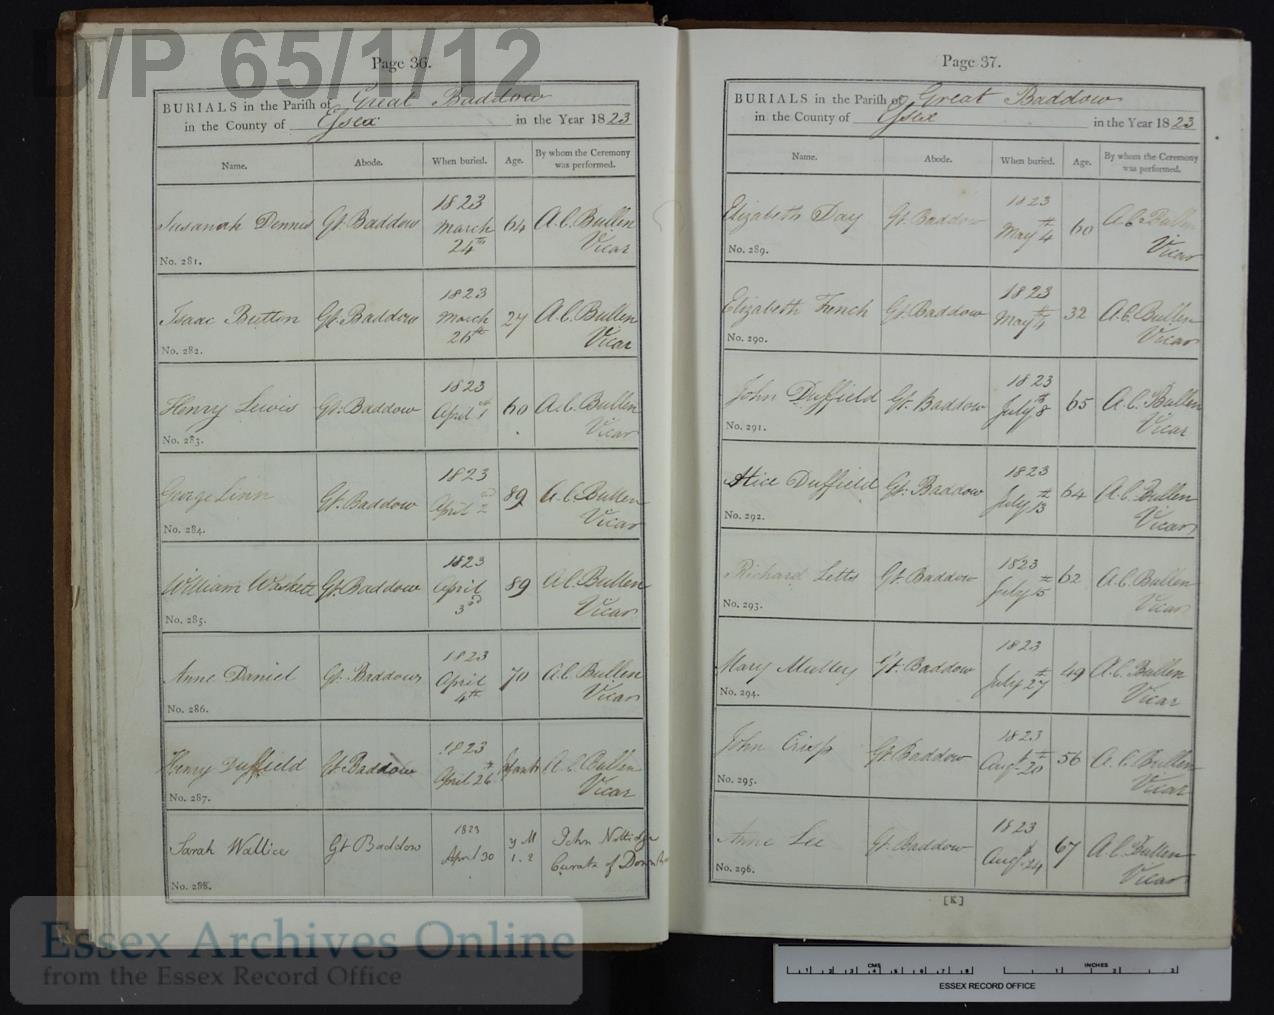 D/P 65/1/12
Page 36.
BURIALS in the Parish of Great Baddow
in the County of Essex in the Year 1823
Name. Abode. When buried. Age. By whom the Ceremony was performed.
Susanah Dennis Gt. Baddow 1823 March 24th 64 A.C. Bullen Vicar
No. 281.
Isaac Button Gt. Baddow 1823 March 26th 27 A.C. Bullen Vicar
No. 282.
Henry Lewis Gt. Baddow 1823 April 1st 60 A.C. Bullen Vicar
No. 283.
George Linn Gt. Baddow 1823 April 2nd 89 A.C. Bullen Vicar
No. 284.
William Gt. Baddow 1823 April 3rd 89 A.C. Bullen Vicar
No. 285.
Anne Daniel Gt. Baddow 1823 April 4th 70 A.C. Bullen Vicar
No. 286.
Henry Duffield Gt. Baddow 1823 April 26th Infant A.C. Bullen Vicar
No. 287.
Sarah Wallice Gt Baddow 1823 April 30 y M 1. 2 John Curate of
No. 288.
Page 37.
BURIALS in the Parish of Great Baddow
in the County of Essex in the Year 1823
Name. Abode. When buried. Age. By whom the Ceremony was performed.
Elizabeth Day Gt. Baddow 1823 May 4th 60 A.C. Bullen Vicar
No. 289.
Elizabeth French Gt. Baddow 1823 May 4th 32 A.C. Bullen Vicar
No. 290.
John Duffield Gt. Baddow 1823 July 8th 65 A.C. Bullen Vicar
No. 291.
Alice Duffield Gt. Baddow 1823 July 13th 64 A.C. Bullen Vicar
No. 292.
Richard Letts Gt. Baddow 1823 July 15th 62 A.C. Bullen Vicar
No. 293.
Mary Mulley Gt. Baddow 1823 July 27th 49 A.C. Bullen Vicar
No. 294.
John Crisp Gt. Baddow 1823 Augt 20th 56 A.C. Bullen Vicar
No. 295.
Anne Lee Gt. Baddow 1823 Augt 24 67 A.C. Bullen Vicar
No. 296.
[K]
Essex Archives Online
from the Essex Record Office
CMS INCHES
ESSEX RECORD OFFICE